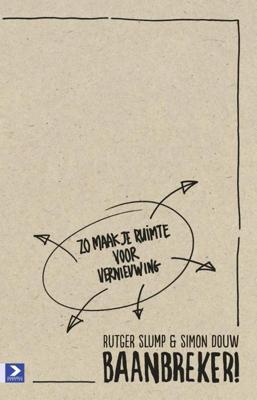 ZO MAAK JE RUIMTE
VOOR
VERNIEUWING
RUTGER SLUMP & SIMON DOUW
BAANBREKER!